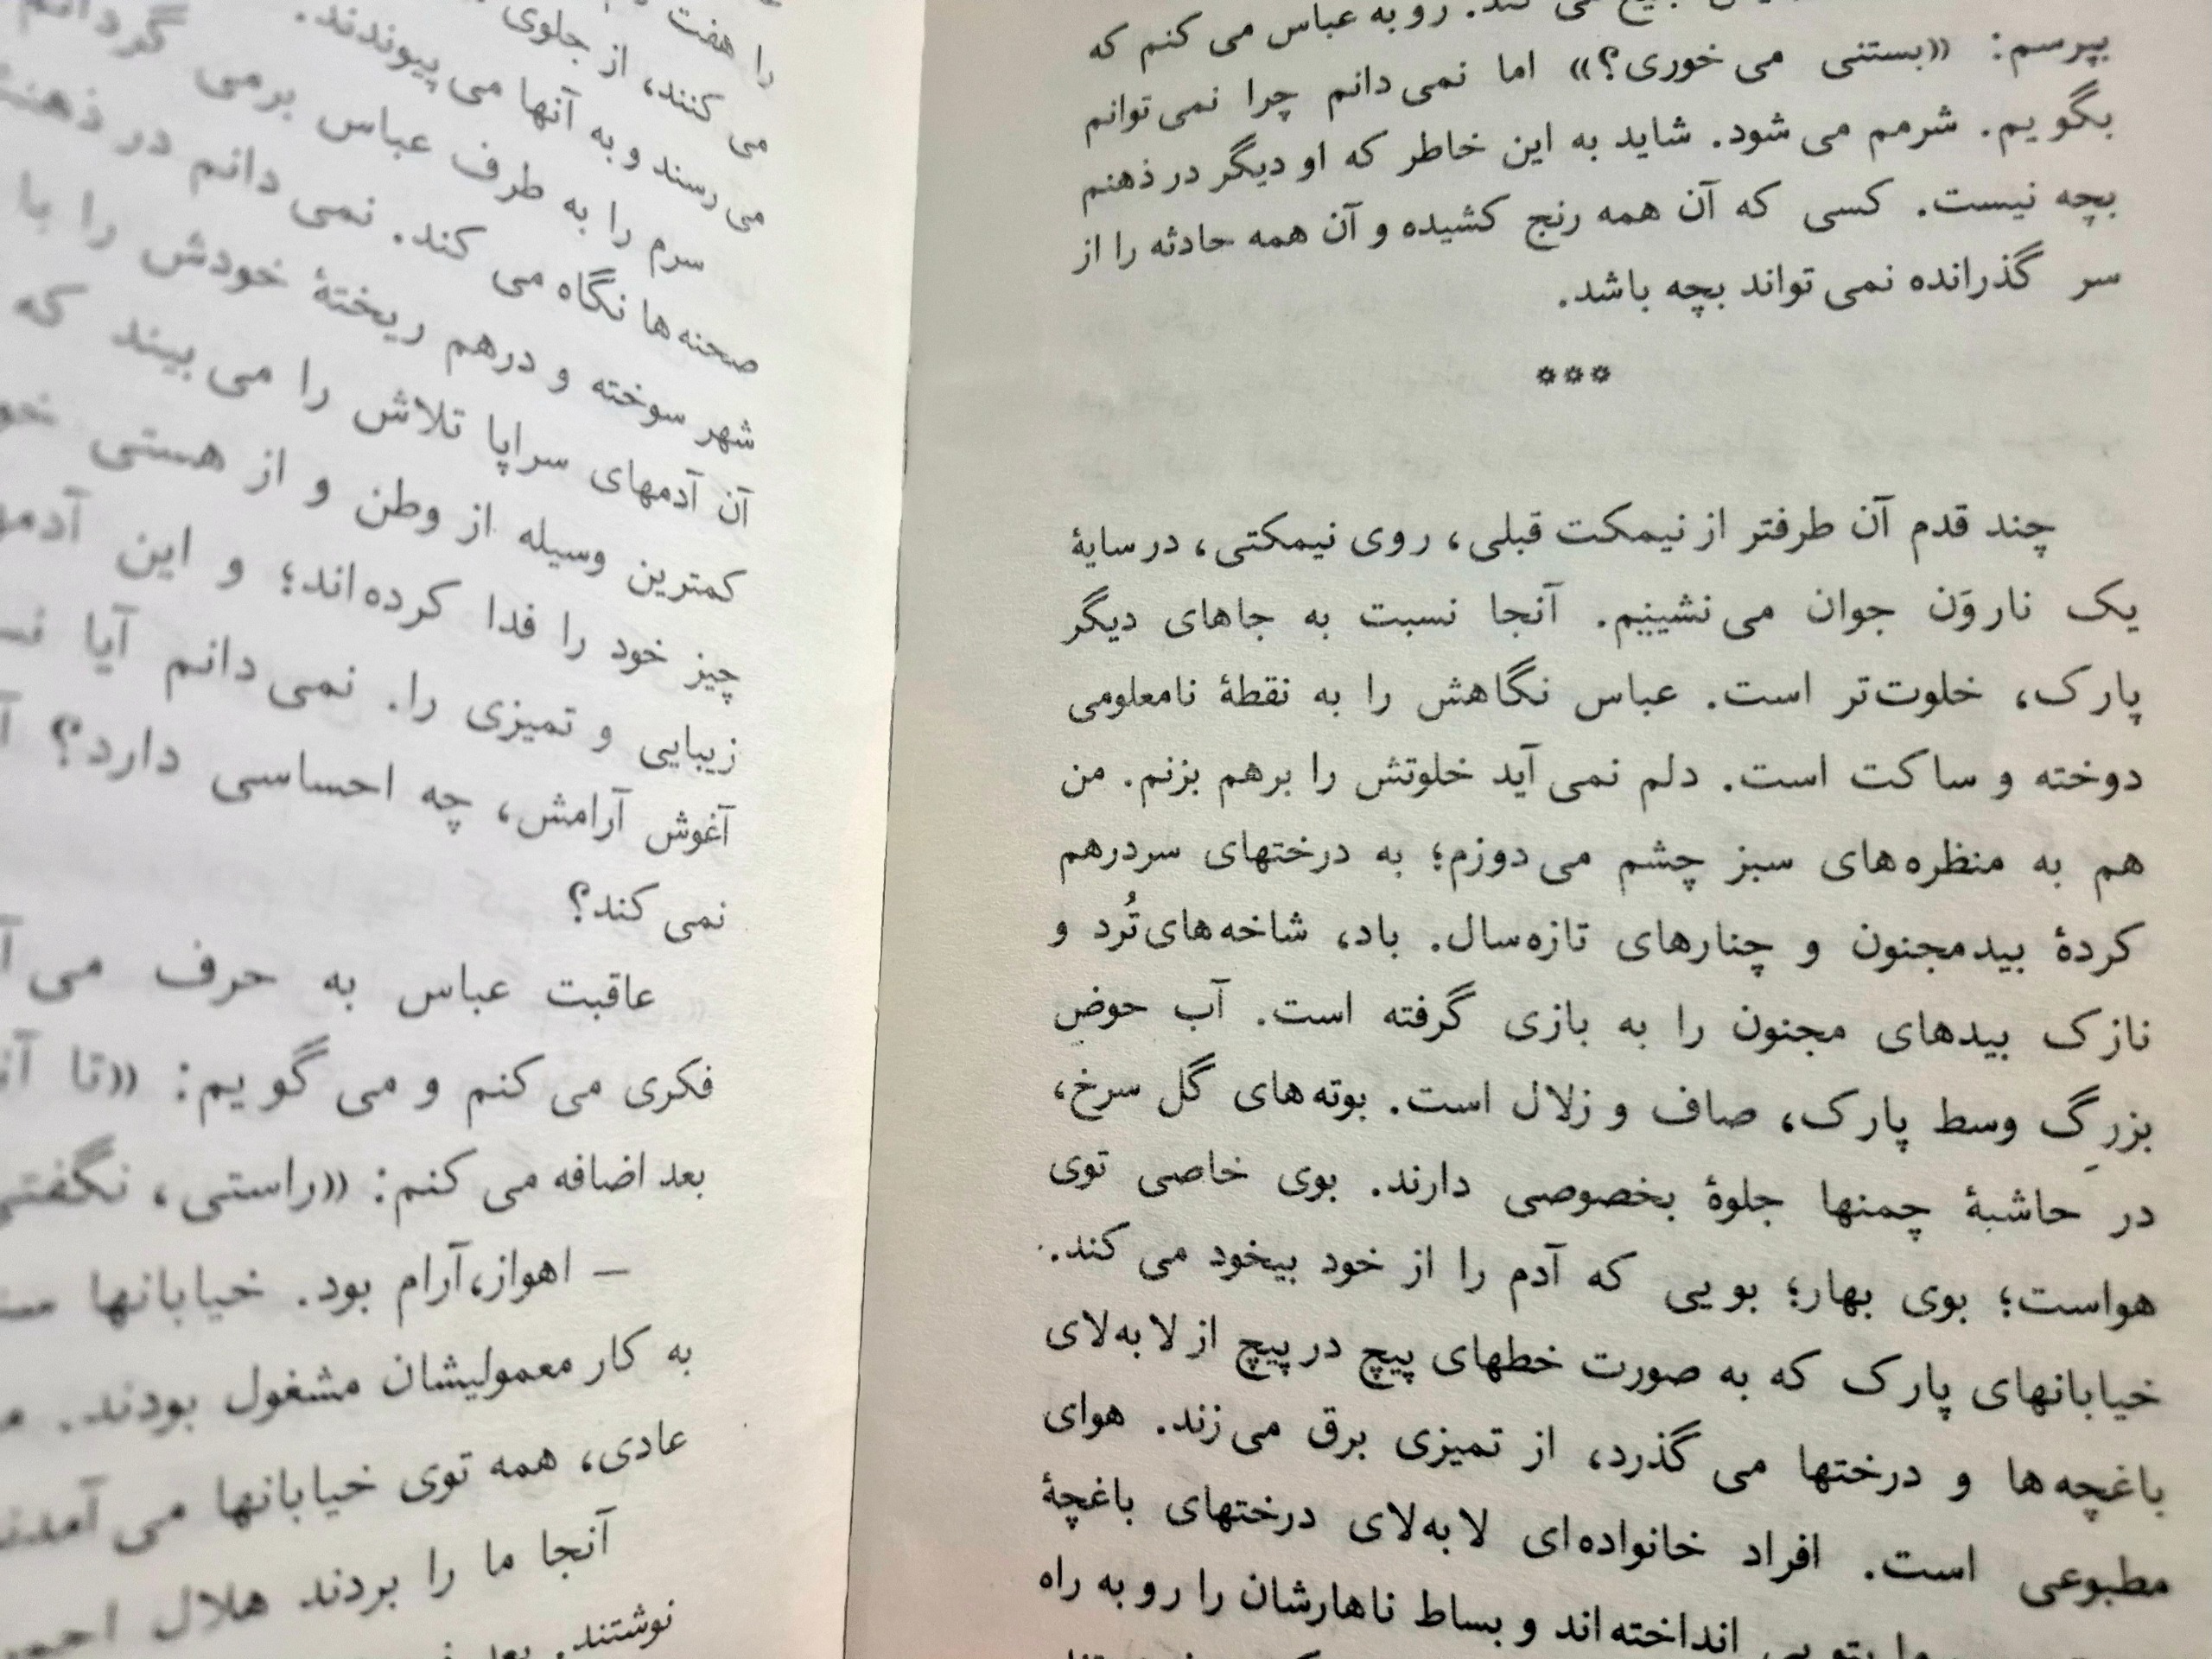 رو به عباس می کنم که
بپرسم: «بستنی می خوری؟» اما نمی دانم چرا نمی توانم
بگویم. شرمم می شود. شاید به این خاطر که او دیگر در ذهنم
بچه نیست. کسی که آن همه رنج کشیده و آن همه حادثه را از
سر گذرانده نمی تواند بچه باشد.
***
چند قدم آن طرفتر از نیمکت قبلی، روی نیمکتی، در سایهٔ
یک نارَوَن جوان می نشینیم. آنجا نسبت به جاهای دیگر
پارک، خلوت تر است. عباس نگاهش را به نقطهٔ نامعلومی
دوخته و ساکت است. دلم نمی آید خلوتش را برهم بزنم. من
هم به منظره های سبز چشم می دوزم؛ به درختهای سردرهم
کردهٔ بیدمجنون و چنارهای تازه سال. باد، شاخه های تُرد و
نازک بیدهای مجنون را به بازی گرفته است. آب حوضِ
بزرگِ وسط پارک، صاف و زلال است. بوته های گل سرخ،
در حاشیهٔ چمنها جلوهٔ بخصوصی دارند. بوی خاصی توی
هواست؛ بوی بهار؛ بویی که آدم را از خود بیخود می کند.
خیابانهای پارک که به صورت خطهای پیچ در پیچ از لابه لای
باغچه ها و درختها می گذرد، از تمیزی برق می زند. هوای
مطبوعی است. افراد خانواده ای لابه لای درختهای باغچهٔ
انداخته اند و بساط ناهارشان را رو به راه
را هفت
می کنند، از جلوی
می رسند و به آنها می پیوندند.
سرم را به طرف عباس برمی گردانم
صحنه ها نگاه می کند. نمی دانم در ذهنش
شهر سوخته و درهم ریختهٔ خودش را با
آن آدمهای سراپا تلاش را می بیند که
کمترین وسیله از وطن و از هستی
چیز خود را فدا کرده اند؛ و این
زیبایی و تمیزی را. نمی دانم آیا
آغوش آرامش، چه احساسی دارد؟
نمی کند؟
عاقبت عباس به حرف می
فکری می کنم و می گویم: «تا
بعد اضافه می کنم: «راستی، نگفتی
– اهواز، آرام بود. خیابانها
به کار معمولیشان مشغول بودند.
عادی، همه توی خیابانها می آمدند
آنجا ما را بردند هلال احمر
نوشتند. بعد